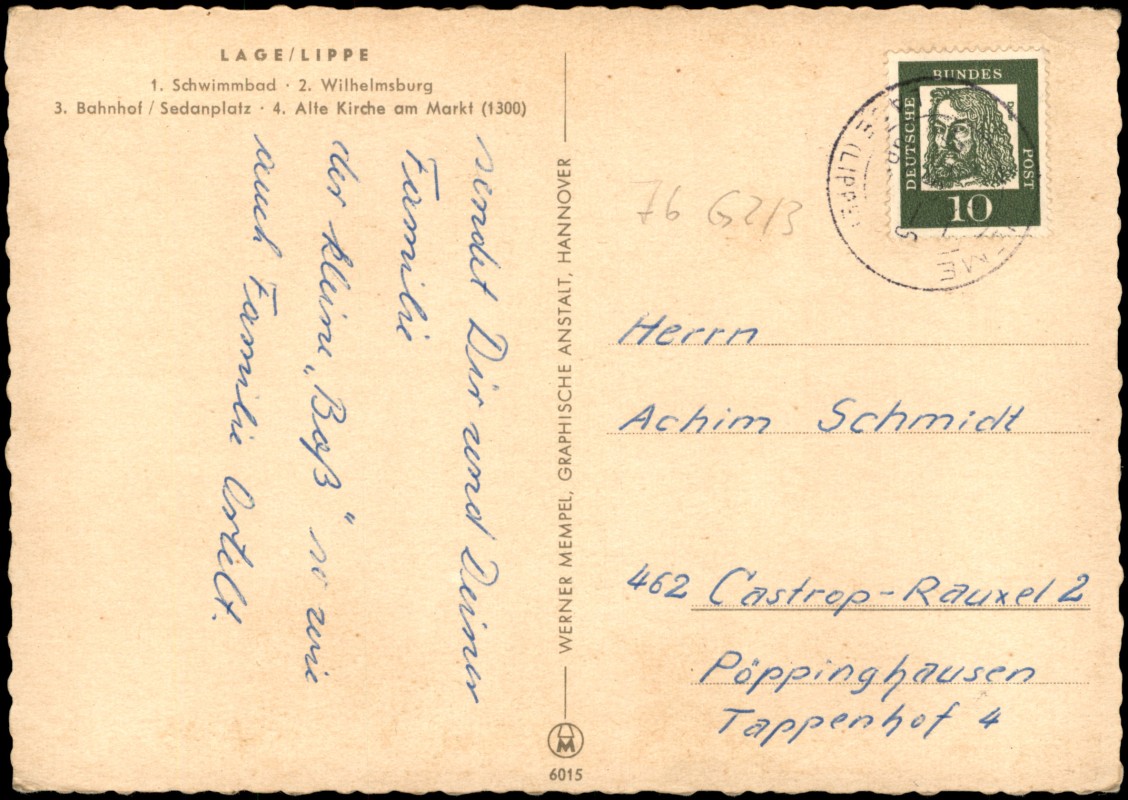 LAGE/LIPPE
1. Schwimmbad · 2. Wilhelmsburg
3. Bahnhof / Sedanplatz · 4. Alte Kirche am Markt (1300)
sendet Dir und Deiner
Familie
der kleine „Boß" so wie
auch Familie
WERNER MEMPEL, GRAPHISCHE ANSTALT, HANNOVER
M
6015
DEUTSCHE
BUNDES
POST
10
(LIPPE)
76 G2/3
Herrn
Achim Schmidt
462 Castrop-Rauxel 2
Pöppinghausen
Tappenhof 4